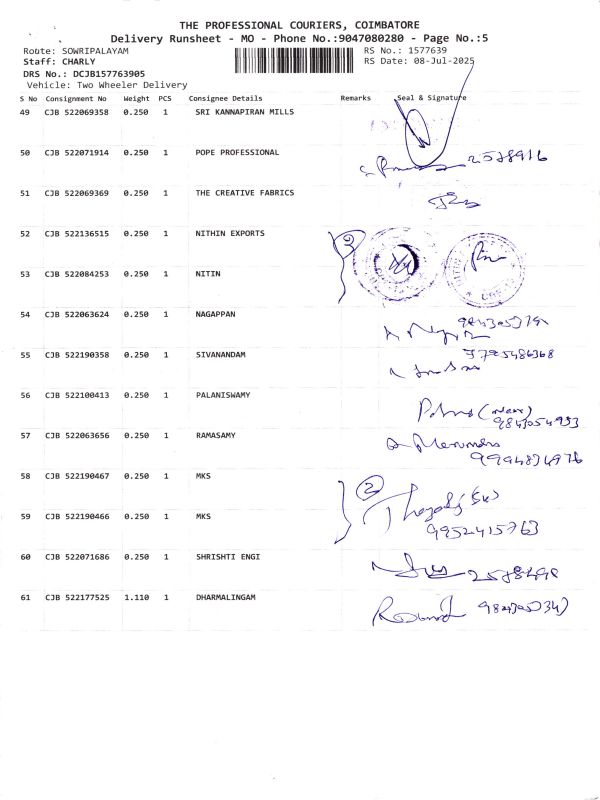 THE PROFESSIONAL COURIERS, COIMBATORE
Delivery Runsheet - MO - Phone No.:9047080280 - Page No.:5
Route: SOWRIPALAYAM RS No.: 1577639
Staff: CHARLY RS Date: 08-Jul-2025
DRS No.: DCJB157763905
Vehicle: Two Wheeler Delivery
S No Consignment No Weight PCS Consignee Details Remarks Seal & Signature
49 CJB 522069358 0.250 1 SRI KANNAPIRAN MILLS
50 CJB 522071914 0.250 1 POPE PROFESSIONAL
2578916
51 CJB 522069369 0.250 1 THE CREATIVE FABRICS
52 CJB 522136515 0.250 1 NITHIN EXPORTS
2
53 CJB 522084253 0.250 1 NITIN
54 CJB 522063624 0.250 1 NAGAPPAN
55 CJB 522190358 0.250 1 SIVANANDAM
9795486368
56 CJB 522100413 0.250 1 PALANISWAMY
9843054933
57 CJB 522063656 0.250 1 RAMASAMY
9994834976
58 CJB 522190467 0.250 1 MKS
2
59 CJB 522190466 0.250 1 MKS
9952415763
60 CJB 522071686 0.250 1 SHRISHTI ENGI
61 CJB 522177525 1.110 1 DHARMALINGAM